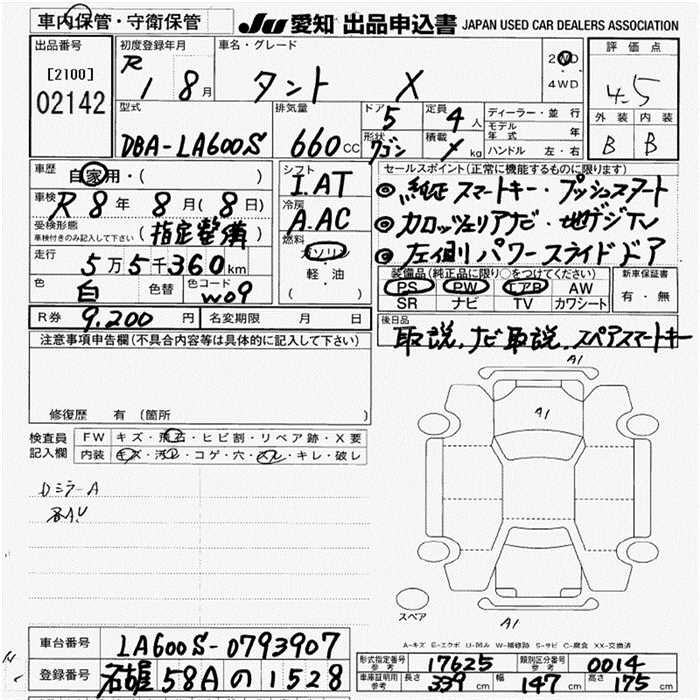 車内保管・守衛保管 JU 愛知 出品申込書 JAPAN USED CAR DEALERS ASSOCIATION
出品番号 [2100] 02142
初度登録年月 R 1 8月
車名・グレード タント X
2WD 4WD
評価点 4.5
外装 内装
B B
型式 DBA-LA600S
排気量 660cc
ドア 5
形状 ワゴン
定員 4人
積載 kg
ディーラー・並行
モデル年式 年
ハンドル 左・右
車歴 自家用・( )
車検 R 8年 8月(8日)
受検形態 車検付きのみ記入して下さい (指定整備)
走行 5万5千360km
色 白 色替 色コード W09
シフト I.AT
冷房 A.AC
燃料 ガソリン 軽・油 ( )
セールスポイント(正常に機能するものに限ります)
◎純正スマートキー・プッシュスタート
◎カロッツェリアナビ・地デジTV
◎左側パワースライドドア
装備品(純正品に限り○をつけてください)
PS PW エアB AW
SR ナビ TV カワシート
新車保証書 有・無
R券 9,200円 名変期限 月 日
後日品 取説、ナビ取説、スペアスマートキー
注意事項申告欄(不具合内容等は具体的に記入して下さい)
修復歴 有(箇所 )
検査員記入欄
FW キズ・飛石・ヒビ割・リペア跡・X要
内装 キズ・汚れ・コゲ・穴・スレ・キレ・破レ
Dミラー A
A1
A1
スペア
A1
A-キズ E-エクボ U-凹み W-補修跡 S-サビ C-腐食 XX-交換済
車台番号 LA600S-0793907
登録番号 58A の 1528
形式指定番号 参考 17625 類別区分番号 参考 0014
車庫証明用 参考 長さ 339cm 幅 147cm 高さ 175cm